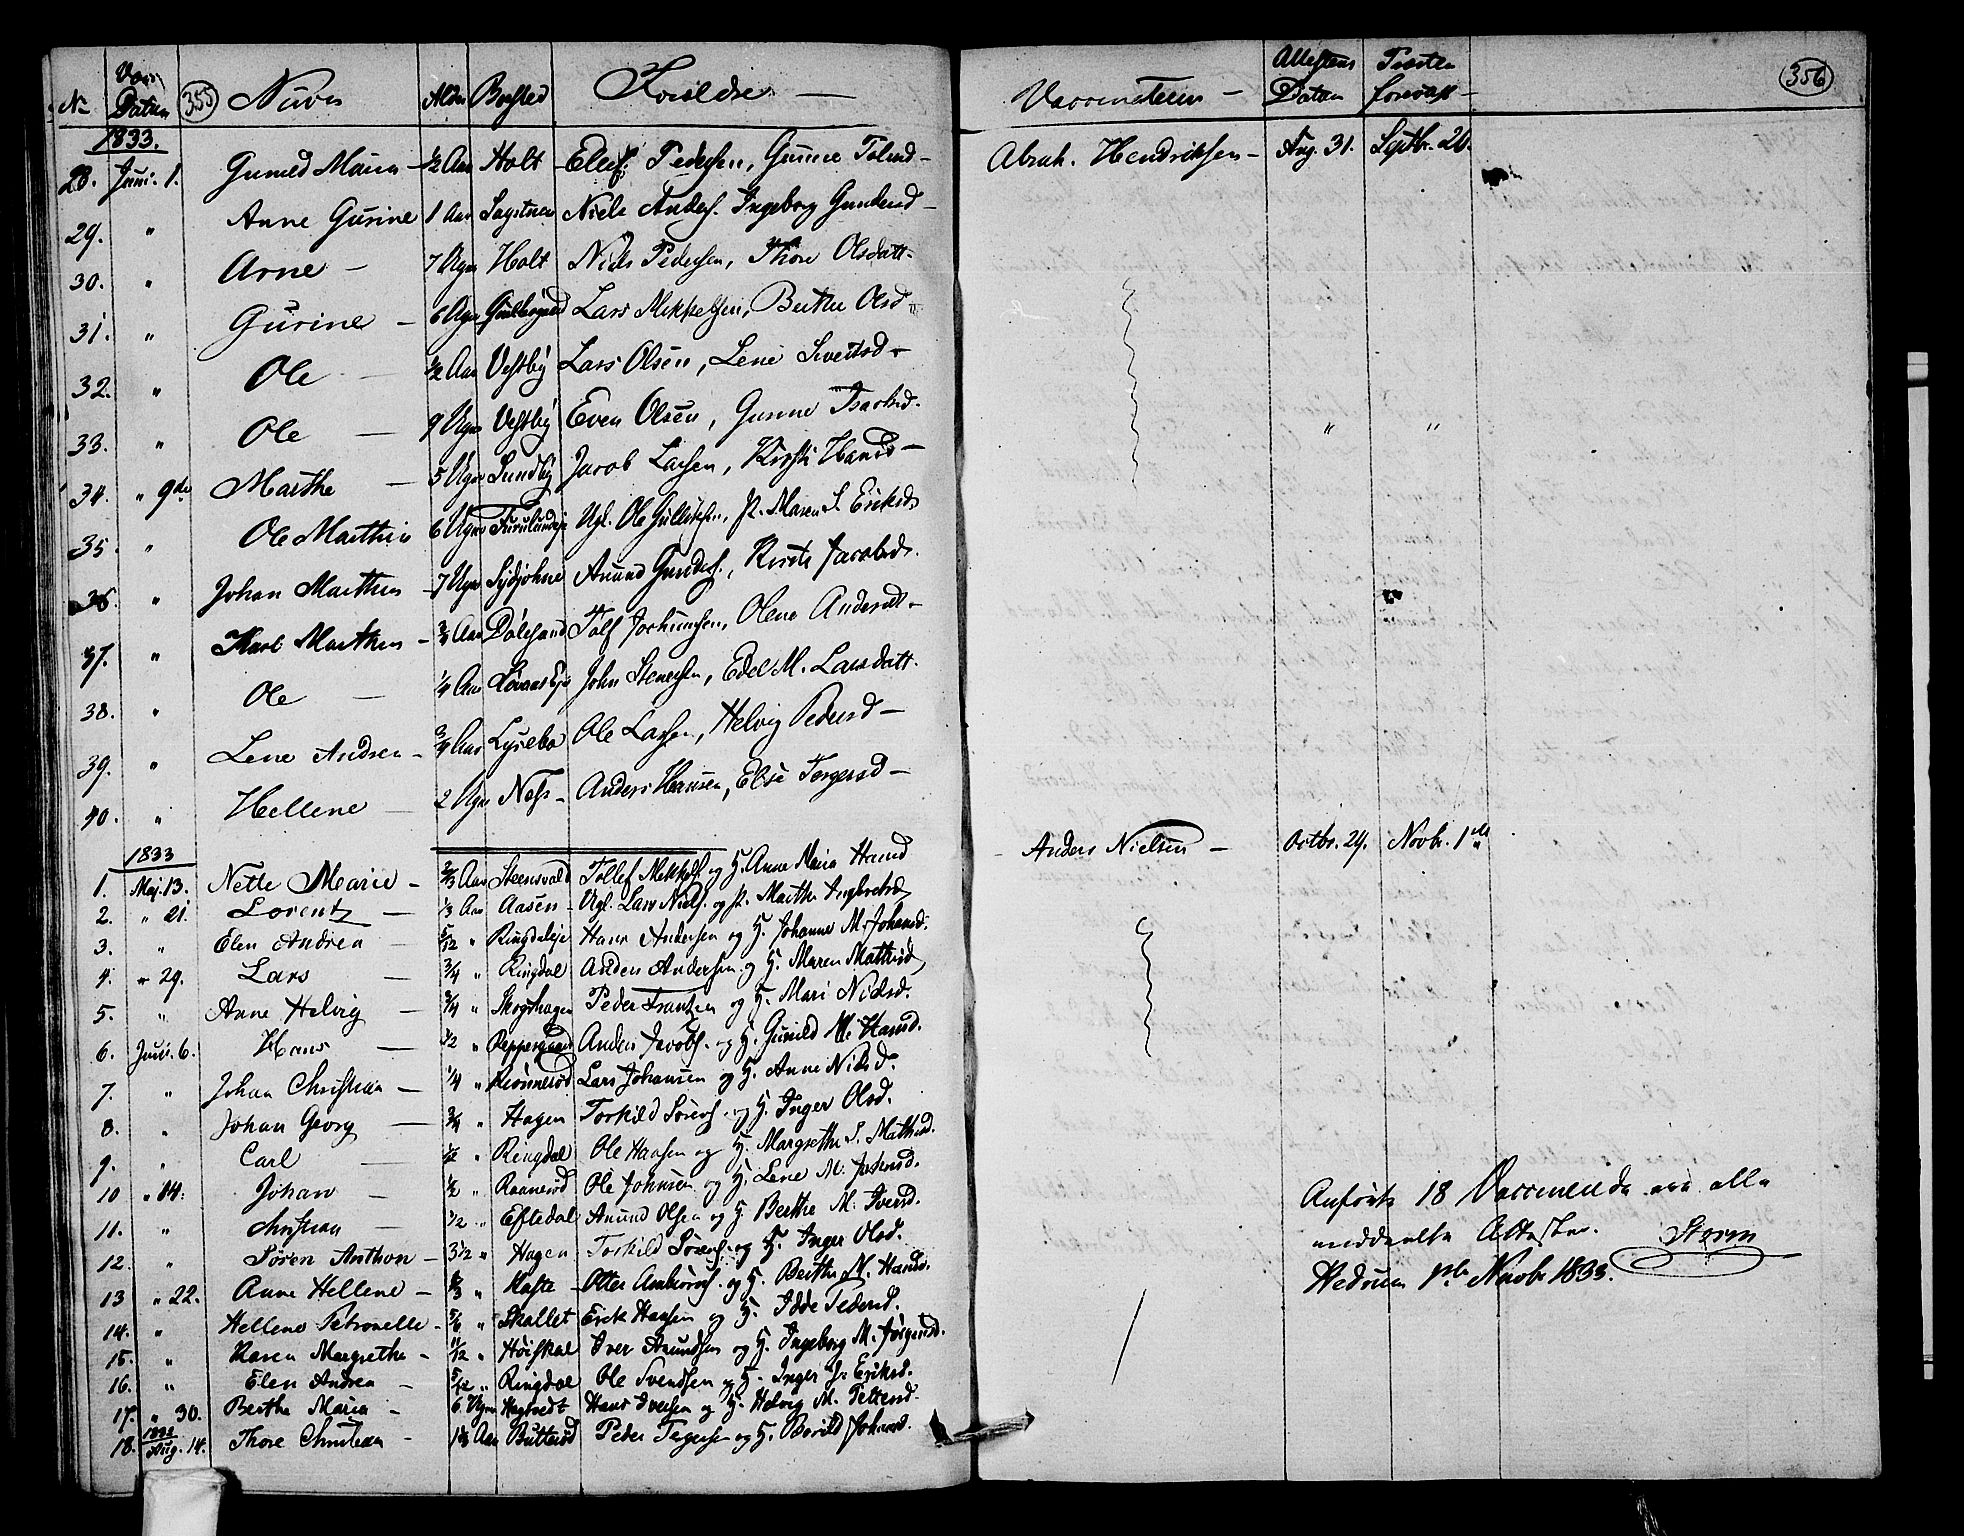 No Vacc. Datum 355 Navn Alder Bosted Forældre — Vaccinateur — Attestens Datum Protok. 356
1833.
28. Juni. 1. Gunild Maria — 1/2 Aar Holt Ellef Pedersen, Gunne Tolusd — Abrah. Hendriksen — Aug. 31. Septbr. 20.
29. " Anne Gurine 1 Aar Niels Anders. Ingeborg Gundersd —
30. " Arne — 7 Ugr Holt Niels Pedersen, Thore Olsdatt.
31. " Gurine — 6 Ugr Lars Mikkelsen, Berthe Olsd
32. " Ole — 1/2 Aar Vestby Lars Olsen, Lene Sivertsd —
33. " Ole — 9 Ugr Vestby Even Olsen, Gunne Isaksd. " "
34. " 9de Marthe — 5 Ugr Sundby Jacob Larsen, Kirsti Hansd —
35. " Ole Marthin 6 Ugr Ugl. Ole Gulliksen, P. Maren S. Eriksd
36. " Johan Marthin — 7 Ugr Anund Gunders., Kirsti Jacobsd.
37. " Karl Marthin — 3/4 Aar Dalesand Tolf Jochumsen, Olene Andersdtt —
38. " Ole — 1/4 Aar John Stenersen, Edel M. Larsdatt.
39. " Lene Andrea — 3/4 Aar Lysebo Ole Larsen, Helvig Pedersd —
40. " Hellene — 2 Ugr Nes — Anders Hansen, Else Torgersd —
1833
1. Maj. 13. Nette Marie — 2/3 Aar Steensvald Tollef Mikkels. og H. Anne Maria Hansd — Anders Nielsen — Octbr. 29. Novbr. 1ste
2. " 21. Lorentz — 1/3 Aar Aasen — Ugl. Lars Niels. og P. Marthe Ingbretsd
3. " Elen Andrea — 5/12 " Ringdaleje Hans Andersen og H. Johanne M. Johansd.
4. " 29. Lars — 3/4 " Ringdal Anders Andersen og H. Maren Mathisd
5. " Anne Helvig — 3/4 " Skogshagen Peder Frantzen og H. Mari Nielsd.
6. Juni. 6. Hans — 1/2 " Peppergaard Anders Jacobs. og H. Gunild M. Hansd.
7. " Johan Christian — 1/4 " Lars Johansen og H. Anne Nielsd.
8. " Johan Georg — 3/4 " Hagen Torkild Sörens. og H. Inger Olsd.
9. " Carl — " Ringdal Ole Hansen og H. Margrethe S. Mathisd.
10 " 14. Johan — 1/2 " Raanerød Ole Johnsen og H. Lene M. Jensd.
11. " Christian — 1/2 " Eftedal Anund Olsen og H. Berthe M. Iversd.
12. " Sören Anthon — 3 1/2 " Hagen Torkild Sörens. og H. Inger Olsd.
13 " 22. Anne Hellene — 2/3 " Hafte — Otter Ambrörs. og H. Berthe N. Hansd.
14. " Hellene Petronelle — 5/6 " Skallet Erik Hansen og H. Idde Pedersd.
15. " Karen Margrethe — 11/12 " Höiskal Iver Anundsen og H. Ingeborg M. Jörgensd.
16. " Elen Andrea — 5/12 " Ringdal Ole Svendsen og H. Inger Jr. Eriksd.
17. " 30. Berthe Maria — 6 Ugr Hagtvedt Hans Iversen og H. Helvig M. Pettersd.
18. 1832 Aug. 14. Thore Christian — 1 1/2 Aar Butterød Peder Torgersen og H. Borild Johansd.
Anførte 18 Vaccinerede ere alle
meddeelte Attester. Storm
Hedrum 1ste Novbr 1833.